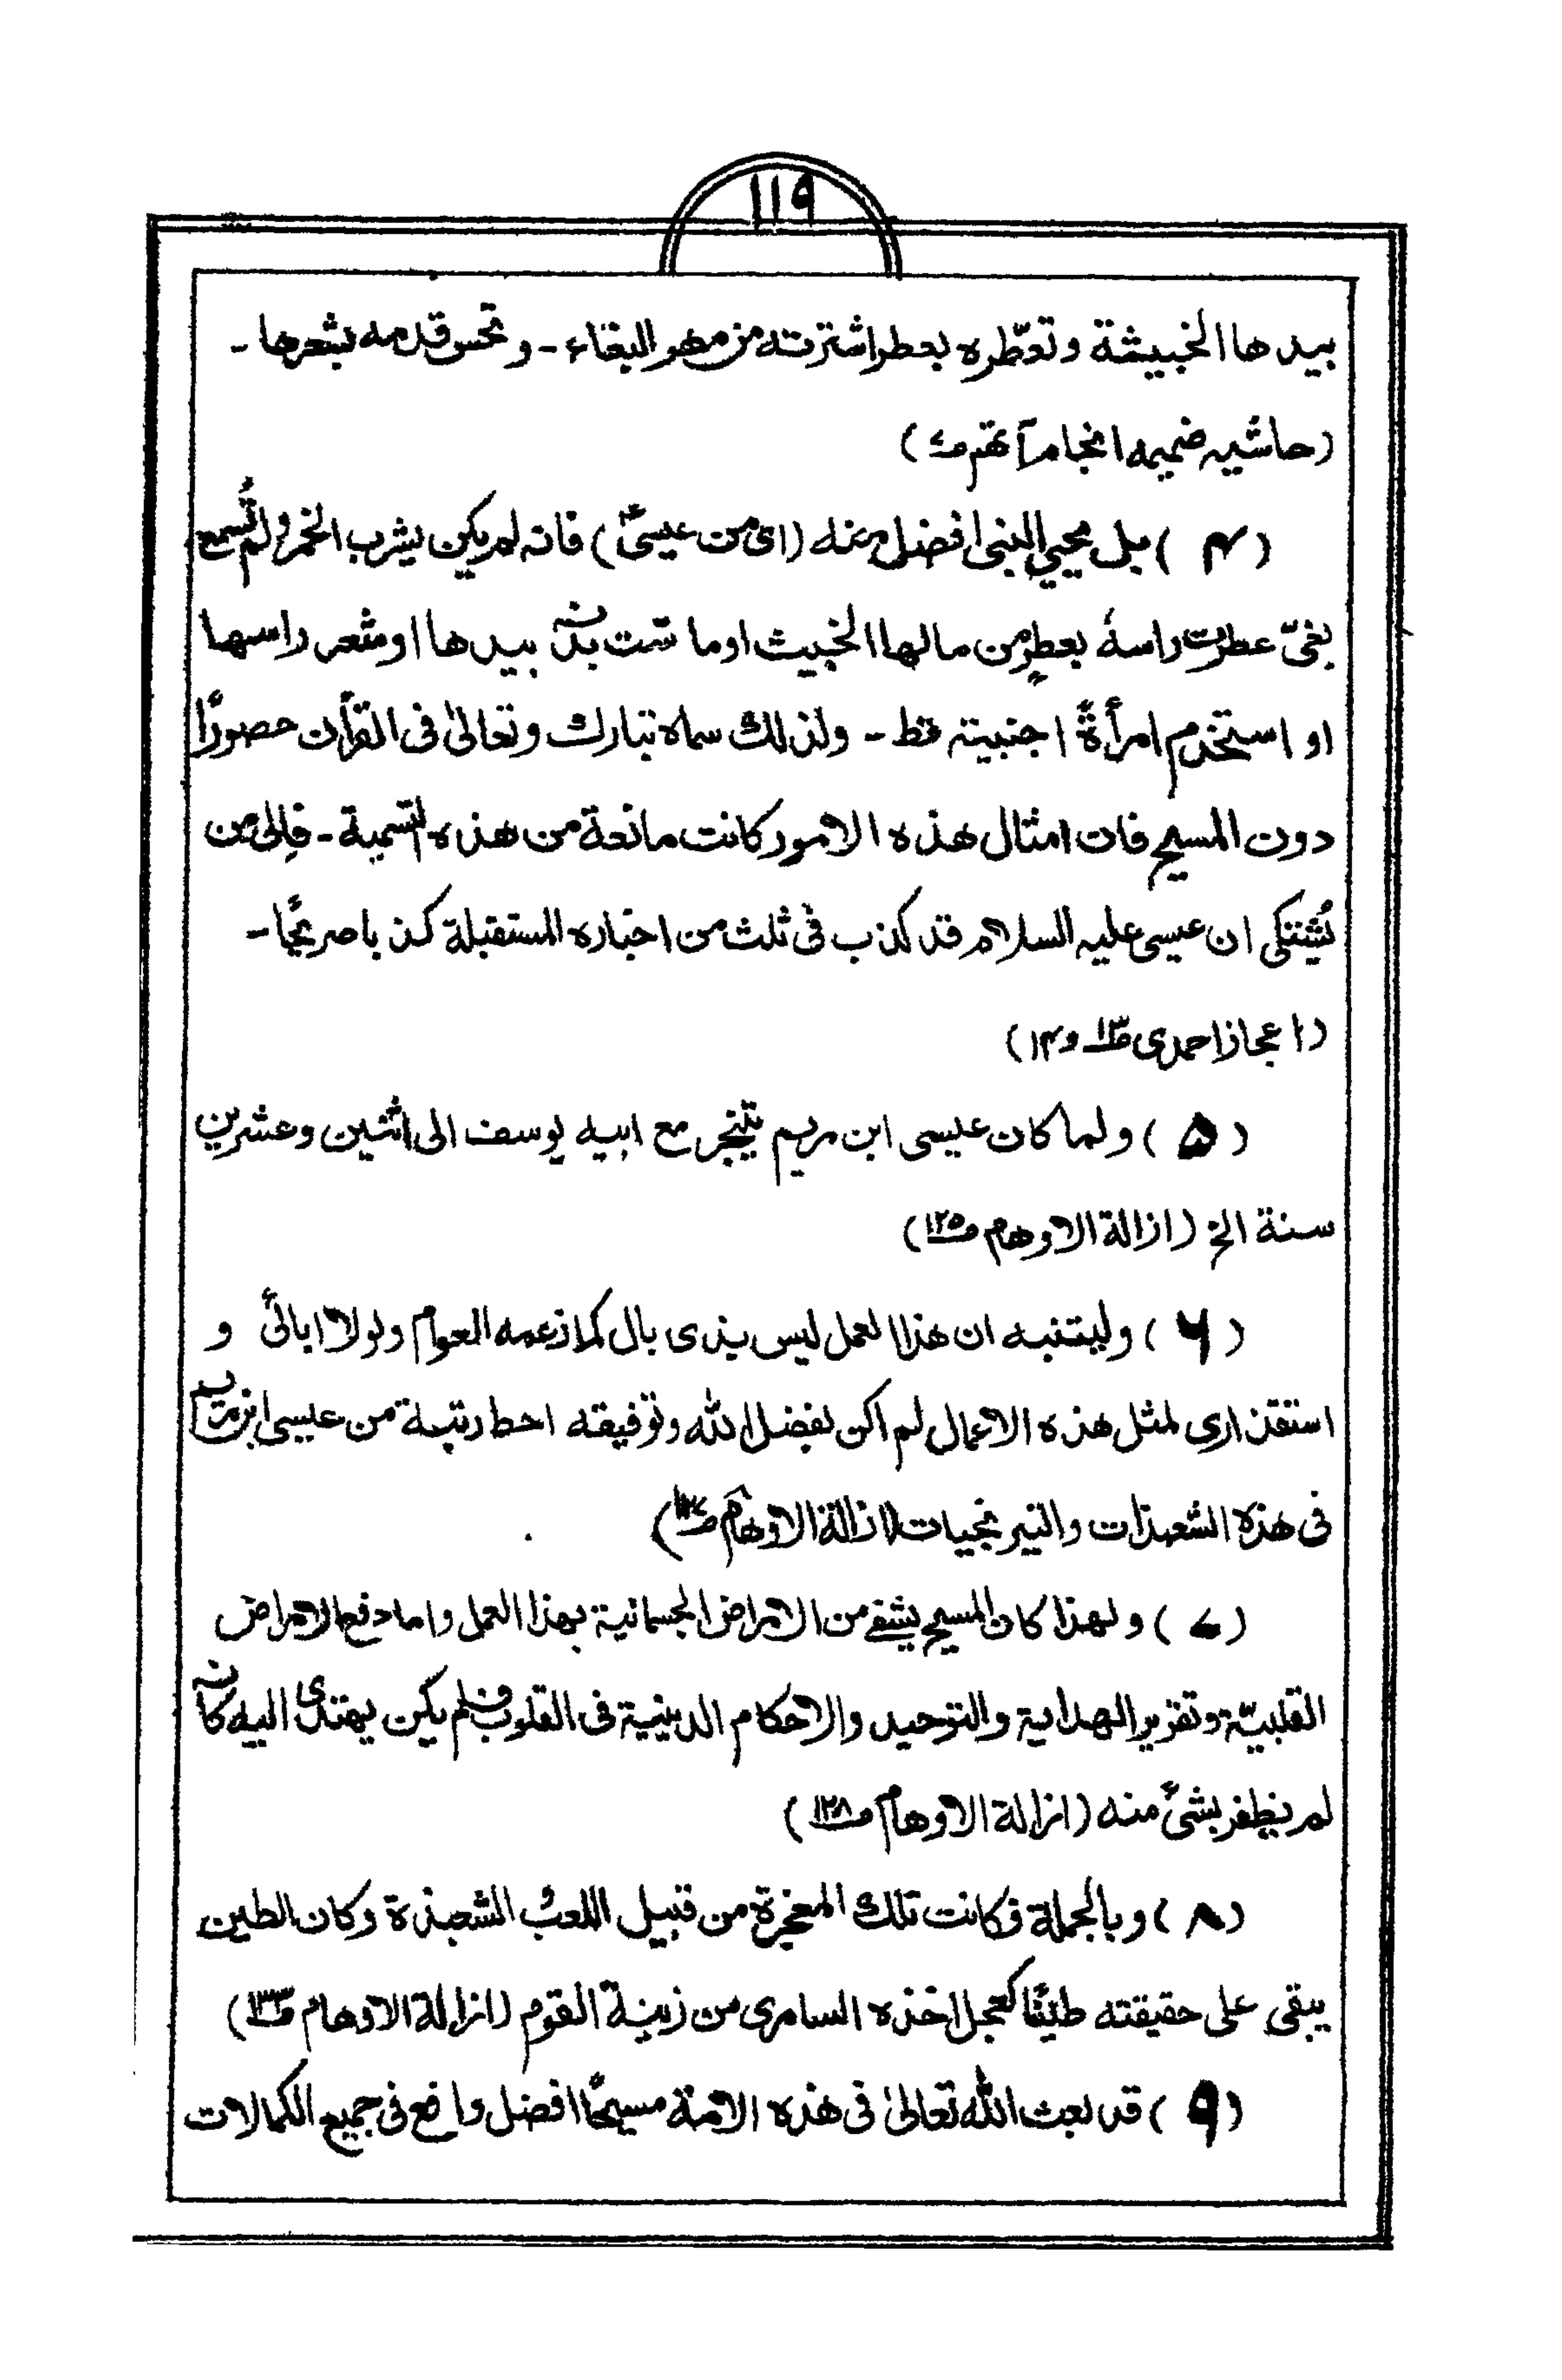 ۱۱۹
بيدها الخبيثة وتعطّره بعطر اشترته من مهر البغاء - و تمس قدمه بشعرها -
(حاشیہ ضمیمہ انجام آتھم ص۷)
(۴) بل يحيي النبي افضل منه (اى من عيسىٰؑ) فانه لم يكن يشرب الخمر ولم تُسمع
بغىّ عطرت راسهٗ بعطرٍ من مالها الخبيث اوما سّت بدنه بيدها او شعر راسها
او استخدم امرأةً اجنبية قط - ولذلك سماه تبارك وتعالىٰ فى القرآن حصورًا
دون المسيح فان امثال هذه الامور كانت مانعة من هذه التسمية - فإلىٰ من
نُشتكى ان عيسى عليه السلام قد كذب فى ثلث من اخباره المستقبلة كذبا صريحًا -
(اعجاز احمدی ص۱۳ و ۱۴)
(۵) ولما كان عيسى ابن مريم يتنجر مع ابيه يوسف الى اثنين وعشرين
سنة الخ (ازالة الاوهام ص۱۲۵)
(۶) وليتنبه ان هذا العمل ليس بذى بال كما زعمه العوام ولولا ابائى و
استقذارى لمثل هذه الاعمال لم اكن بفضل الله وتوفيقه احط رتبة من عيسى ابن مريم
فى هذه الشعبذات والنيرنجيات (ازالة الاوهام ص)
(۷) ولهذا كان المسيح يشفى من الامراض الجسمانية بهذا العمل واما دفع الامراض
القلبيّة وتقرير الهداية والتوحيد والاحكام الدينية فى القلوب فلم يكن يهتدى اليه كانه
لم يظفر بشئ منه (ازالة الاوهام ص۱۲۸)
(۸) وبالجملة فكانت تلك المعجزة من قبيل اللعب و الشعبذة وكان الطين
يبقى على حقيقته طينًا كعجل اخذه السامرى من زينة القوم (ازالة الاوهام ص۱۳۳)
(۹) قد بعث الله تعالىٰ فى هذه الامة مسيحًا افضل وارفع فى جميع الكمالات